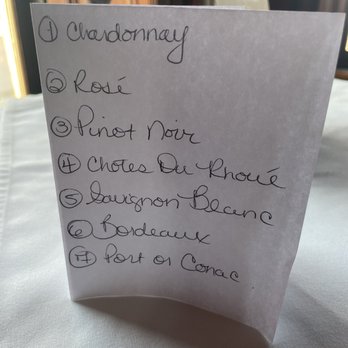 ① Chardonnay
② Rosé
③ Pinot Noir
④ Chotes Du Rhoné
⑤ Sauvignon Blanc
⑥ Bordeaux
⑦ Port or Conac